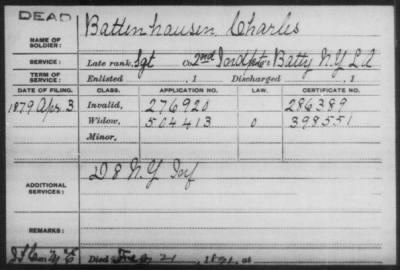 DEAD
NAME OF SOLDIER: Battenhausen Charles
SERVICE: Late rank, Sgt Co. 2nd Indpt. Batty N.Y. L.A.
TERM OF SERVICE: Enlisted , 1 Discharged , 1
DATE OF FILING. CLASS. APPLICATION NO. LAW. CERTIFICATE NO.
1879 Apr. 3 Invalid, 276920 286389
Widow, 504413 0 398551
Minor,
ADDITIONAL SERVICES: D 8 N.Y. Inf
REMARKS:
Died 21, 1891, at